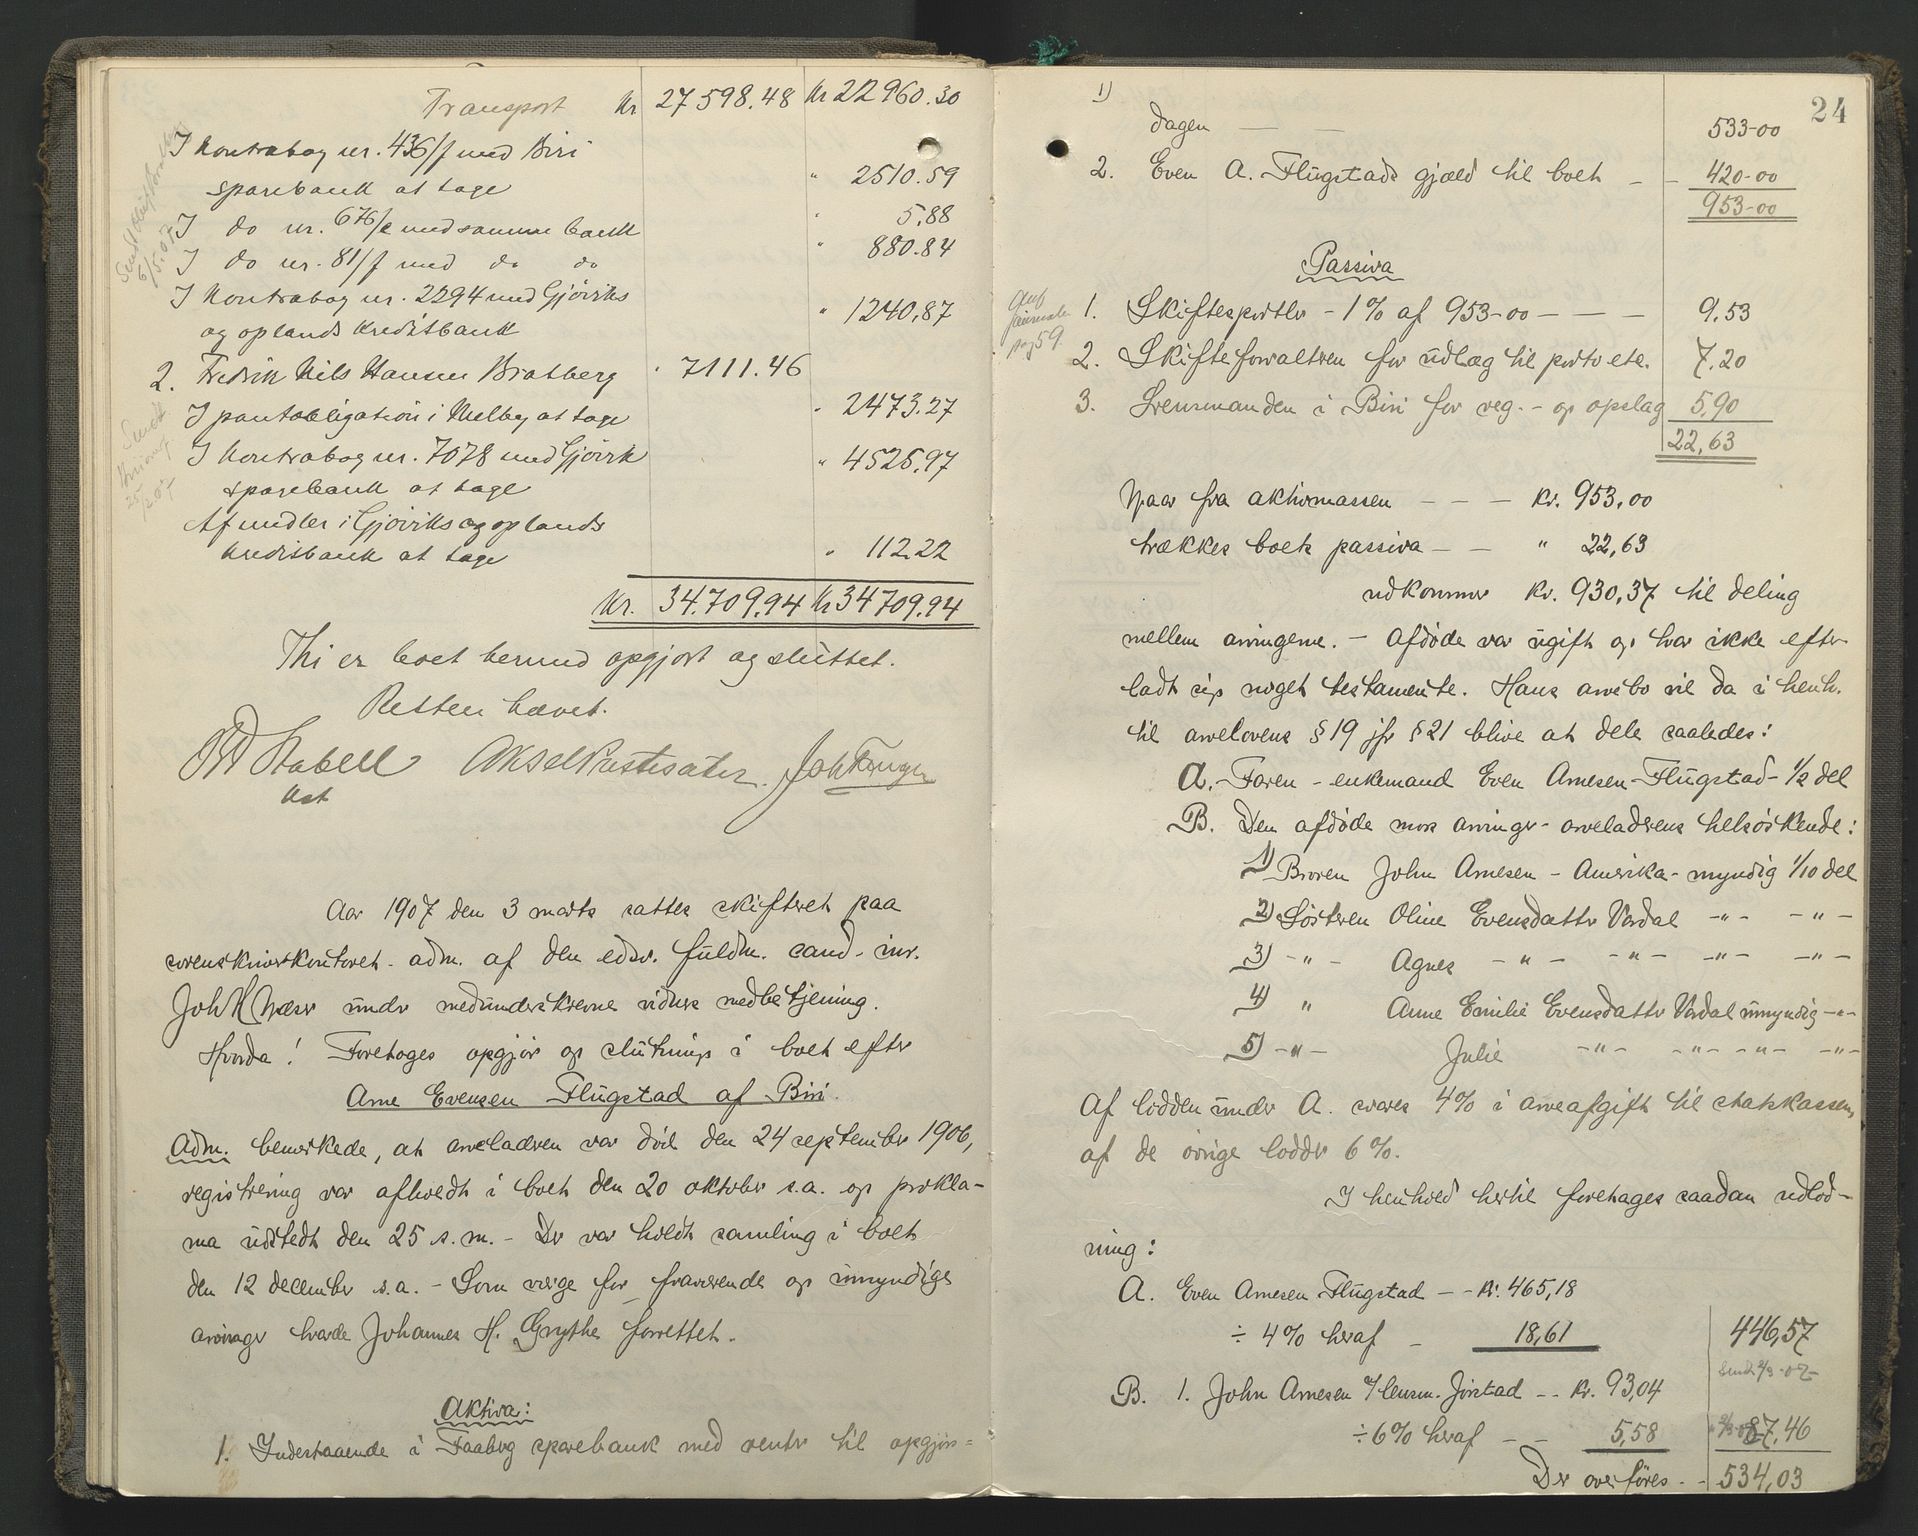 Transport Kr 27598.48 Kr 22960.30
I Kontrabog nr. 436/f med Biri
sparebank at tage " 2510.59
I do nr. 676/e med samme bank " 5,88
I do nr. 81/f med do do " 880.84
I Kontrabog nr. 2294 med Gjøviks
og oplands Kreditbank " 1240,87
2. Fredrik Nils Hansen Bratberg " 7111.46
I pantobligation i Melby at tage " 2473.27
I Kontrabog nr. 7078 med Gjøvik
sparebank at tage " 4525,97
Af midler i Gjøviks og oplands
Kreditbank at tage " 112.22
Kr. 34.709.94 Kr 34709.94
Thi er boet hermed opgjort og sluttet.
Retten hævet.
Stabell
Kst
Aar 1907 den 3 marts sattes skifteret paa
sorenskriverkontoret adm. af den edsv. fuldm. cand. jur.
Joh K Næser under medunderskrevne vidners medbetjening.
Hvorda! Foretoges opgjør og slutning i boet efter
Arne Evensen Flugstad af Biri.
Adm. bemerkede, at arveladeren var død den 24 september 1906,
registrering var afholdt i boet den 20 oktober s.a. og prokla-
ma udstedt den 25 s.m. - Der var holdt samling i boet
den 12 december s.a. - Som værge for fraværende og umyndige
arvinger havde Johannes H. Grythe forrettet.
Aktiva:
1. Indestaaende i Faaberg sparebank med renter til opgjørs=
24
1)
dagen — — 533-00
2. Even A. Flugstads gjæld til boet - - 420-00
953-00
Passiva
pag 59.
1. Skifteportlr - 1% af 953-00 - - - 9.53
2. Skifteforvalteren for udlæg til porto etc. 7.20
3. Lensmanden i Biri for reg. - og opslag 5,90
22,63
Naar fra aktivmassen - - - Kr. 953,00
trækkes boets passiva - - " 22,63
udkommer Kr. 930,37 til deling
mellem arvingerne. - Afdøde var ugift og har ikke efter-
ladt sig noget testamente. Hans arvebo vil da i henh.
til arvelovens § 19 jfr § 21 blive at dele saaledes:
A. Faren - enkemand Even Arnesen Flugstad - 1/2 del
B. Den afdøde mors arvinger - arveladerens helsøskende:
1) Broren John Arnesen - Amerika - myndig 1/10 del
2) Søsteren Oline Evensdatter Vardal -"- -"-
3) -"- Agnes -"- -"- -"- -"-
4) " Anne Emilie Evensdatter Vardal umyndig -"-
5) -"- Julie -"- -"- -"- -"-
Af lodden under A. svares 4% i arveafgift til statskassen,
af de øvrige lodder 6%.
I henhold hertil foretages saadan udlod-
ning:
A. Even Arnesen Flugstad - - Kr. 465,18
÷ 4% heraf - 18,61 446,57
B. 1. John Arnesen lensm. Jørstad - - Kr. 93,04
÷ 6% heraf - - 5,58 87,46
Der overføres - - 534,03